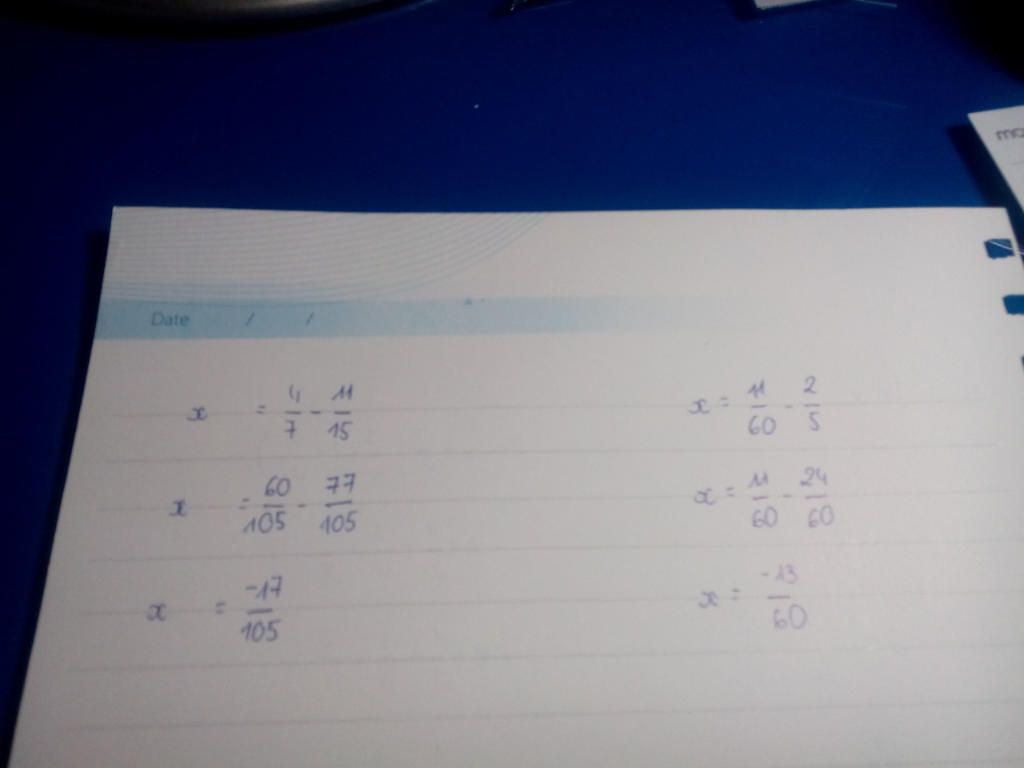 Date / /
x = 4/7 - 11/15
x = 60/105 - 77/105
x = -17/105
x = 11/60 - 2/5
x = 11/60 - 24/60
x = -13/60